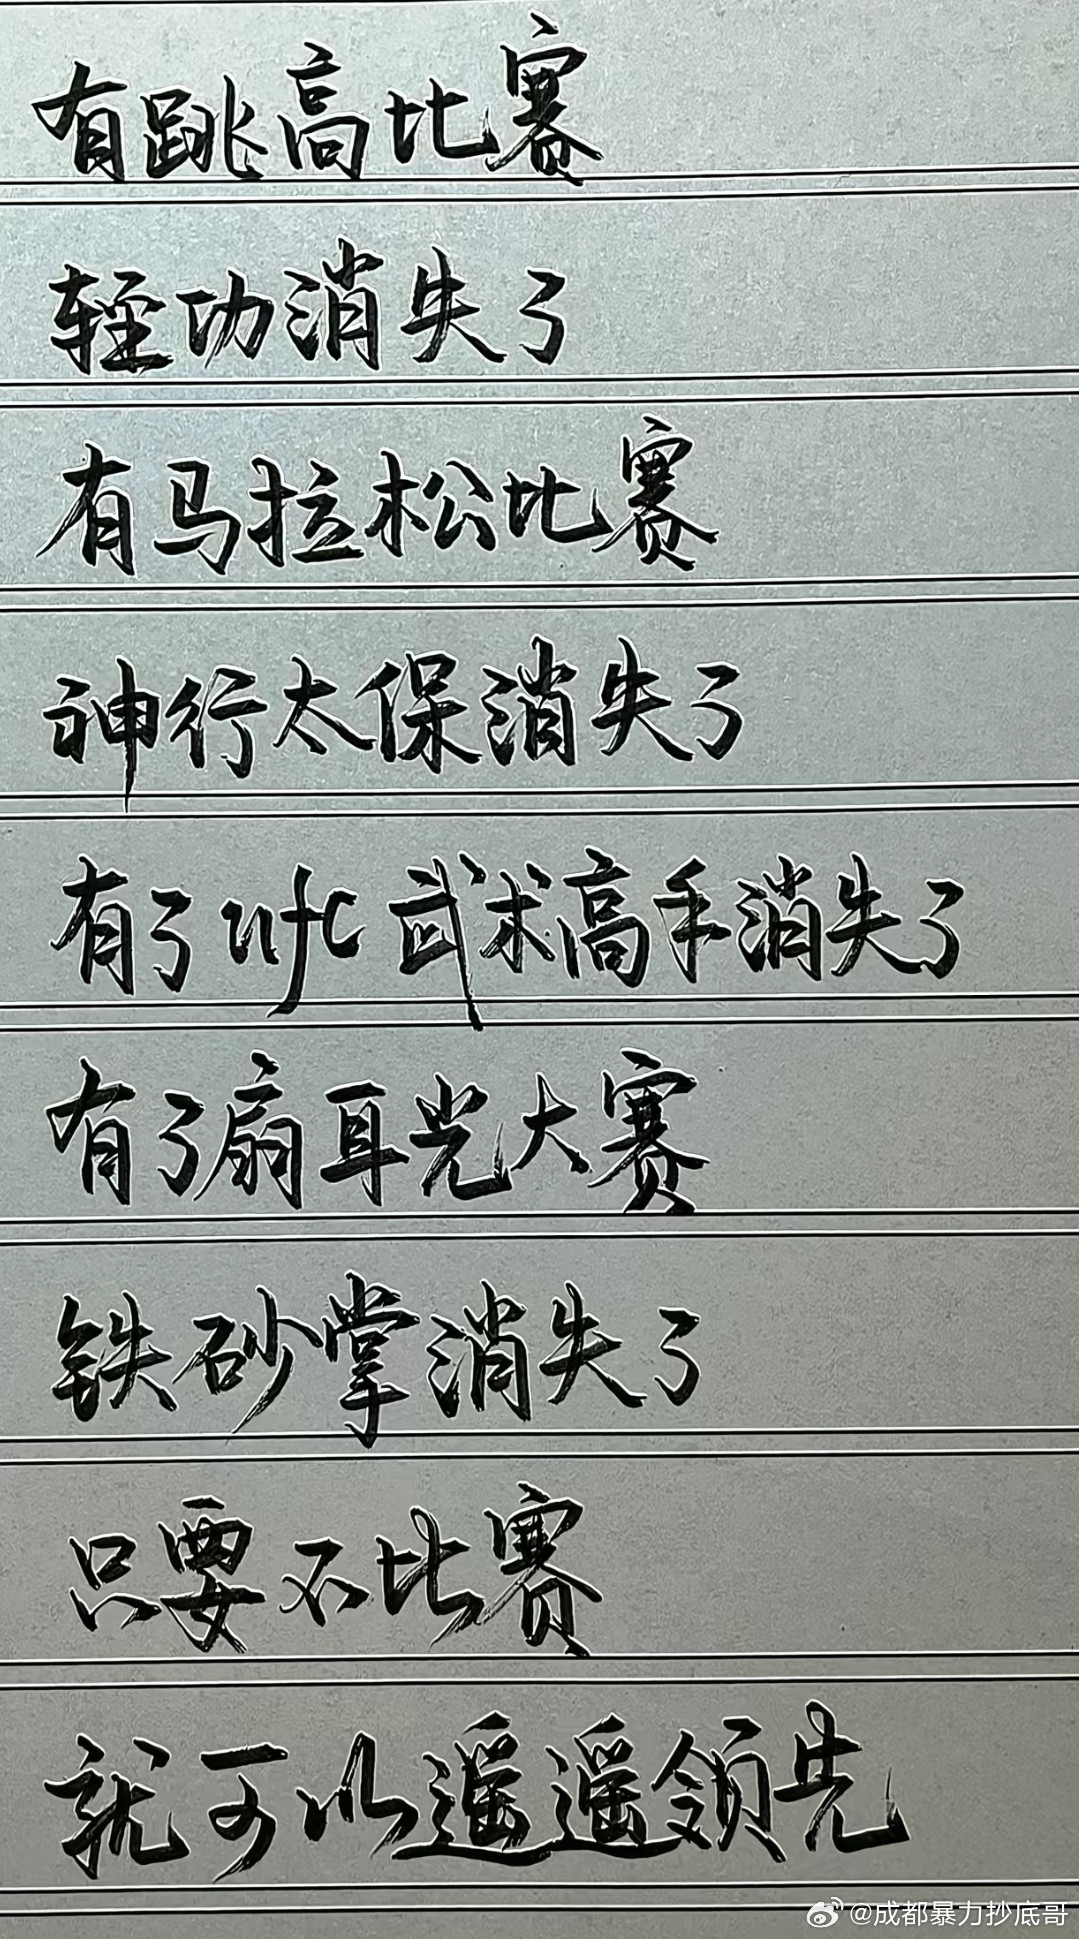 有跳高比赛
轻功消失了
有马拉松比赛
神行太保消失了
有了ufc 武术高手消失了
有了扇耳光大赛
铁砂掌消失了
只要不比赛
就可以遥遥领先
@成都暴力抄底哥